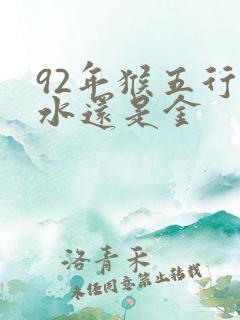 92年猴五行
水還是金
洛青禾
未经同意禁止转载